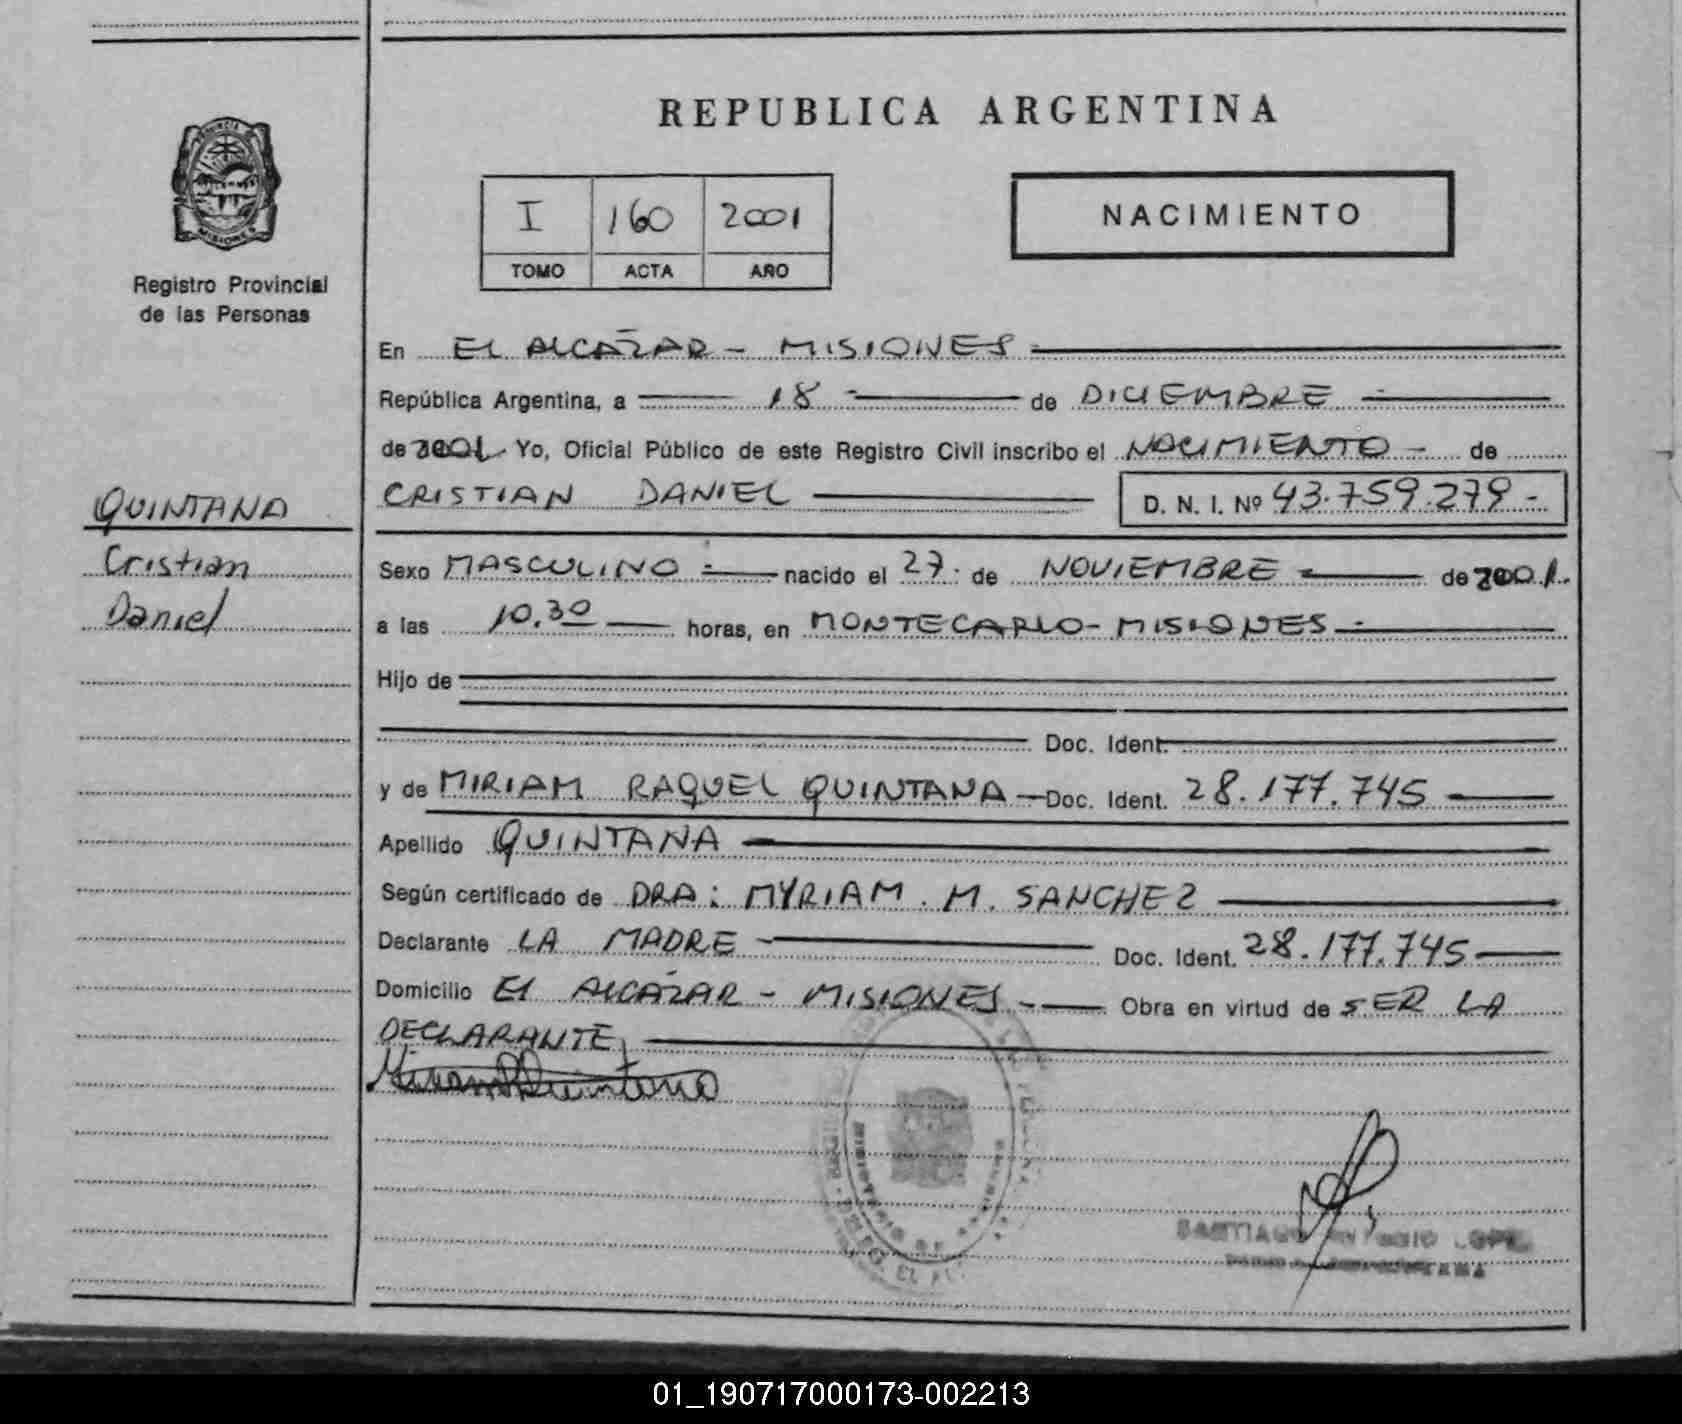 REPUBLICA ARGENTINA
I 160 2001
TOMO ACTA AÑO
NACIMIENTO
PROVINCIA DE
MISIONES
Registro Provincial
de las Personas
QUINTANA
Cristian
Daniel
En EL ALCAZAR - MISIONES
República Argentina, a 18 de DICIEMBRE
de 2001 Yo, Oficial Público de este Registro Civil inscribo el NACIMIENTO - de
CRISTIAN DANIEL D. N. I. Nº 43.759.279 -
Sexo MASCULINO nacido el 27 de NOVIEMBRE de 2001.
a las 10.30 horas, en MONTECARLO - MISIONES
Hijo de
Doc. Ident.
y de MIRIAM RAQUEL QUINTANA Doc. Ident. 28.177.745
Apellido QUINTANA
Según certificado de DRA: MYRIAM. M. SANCHEZ
Declarante LA MADRE Doc. Ident. 28.177.745
Domicilio El ALCAZAR - MISIONES - Obra en virtud de SER LA
DECLARANTE
Miriam R Quintana
MINISTERIO DE
SANTIAGO
01_190717000173-002213